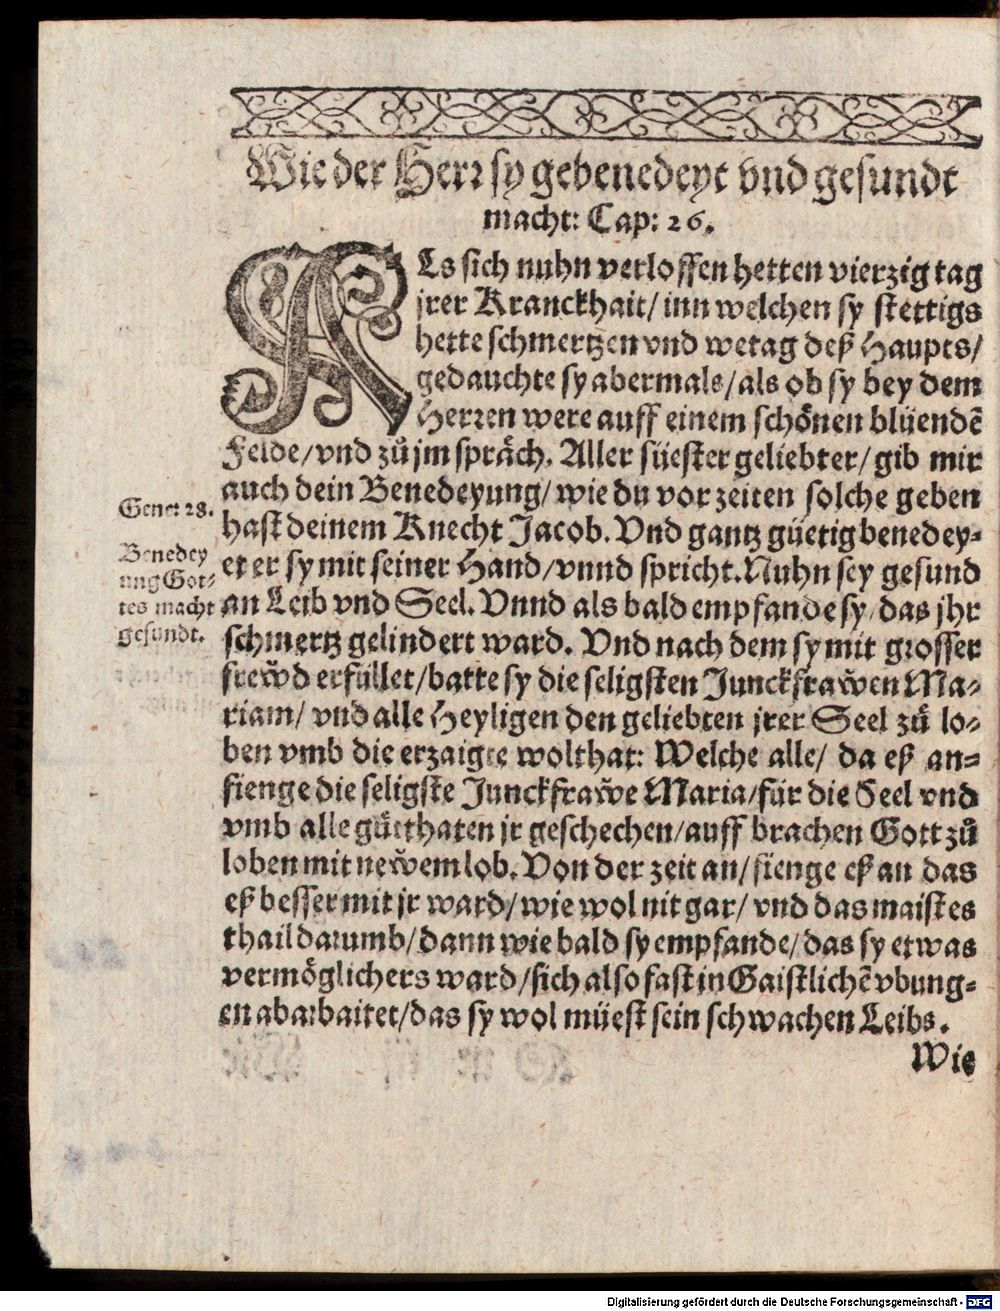 Wie der Herr sy gebenedeyt vnd gesundt
macht: Cap: 26.
ALs sich nuhn verloffen hetten vierzig tag
jrer Kranckhait/ inn welchen sy stettigs
hette schmertzen vnd wetag deß Haupts/
gedauchte sy abermals/ als ob sy bey dem
Herren were auff einem schönen blüendẽ
Felde/ vnd zů jm spräch. Aller süester geliebter/ gib mir
auch dein Benedeyung/ wie du vor zeiten solche geben
hast deinem Knecht Jacob. Vnd gantz güetig benedey-
et er sy mit seiner Hand/ vnnd spricht. Nuhn sey gesund
an Leib vnd Seel. Vnnd als bald empfande sy/ das jhr
schmertz gelindert ward. Vnd nach dem sy mit grosser
frewd erfüllet/ batte sy die seligsten Junckfrawen Ma-
riam/ vnd alle Heyligen den geliebten jrer Seel zů lo-
ben vmb die erzaigte wolthat: Welche alle/ da eß an-
fienge die seligste Junckfrawe Maria/ für die Seel vnd
vmb alle gůtthaten jr geschechen/ auff brachen Gott zů
loben mit newem lob. Von der zeit an/ fienge eß an das
eß besser mit jr ward/ wie wol nit gar/ vnd das maist es
thail darumb/ dann wie bald sy empfande/ das sy etwas
vermöglichers ward/ sich also fast in Gaistlichẽ vbung-
en abarbaitet/ das sy wol müest sein schwachen Leibs.
Wie
Gene: 28.
Benedey
ung Got-
tes macht
gesundt.
Digitalisierung gefördert durch die Deutsche Forschungsgemeinschaft - DFG